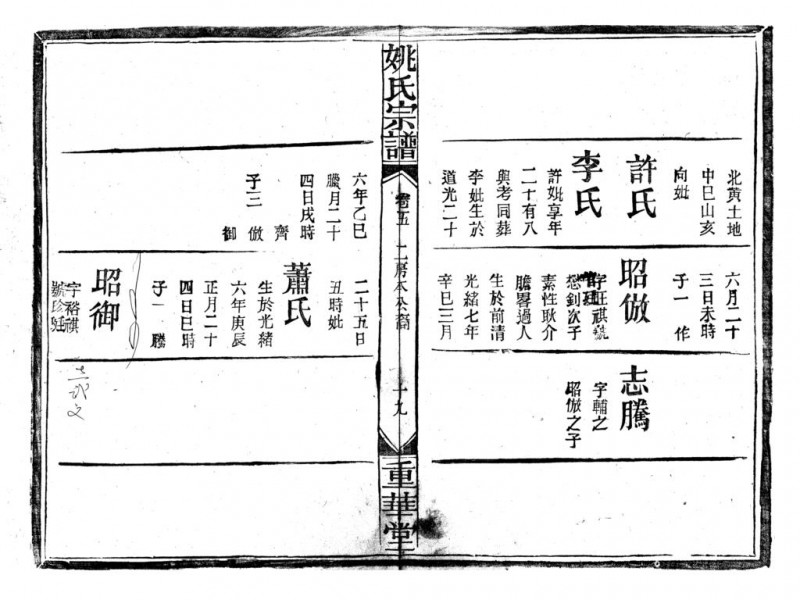 北黄土地
中巳山亥
向妣
許氏
李氏
許妣享年
二十有八
與考同葬
李妣生於
道光二十
六月二十
三日未時
子一 作
昭倣
字正祺號
想釗次子
素性耿介
膽畧過人
生於前清
光緒七年
辛巳三月
志騰
字輔之
昭倣之子
姚氏宗譜
卷五 二房本公裔
十九
重華堂
六年乙巳
臘月二十
四日戌時
子三 齊
倣
御
二十五日
丑時妣
蕭氏
生於光緒
六年庚辰
正月二十
四日巳時
子一 騰
昭御
字裕祺
號珍廷